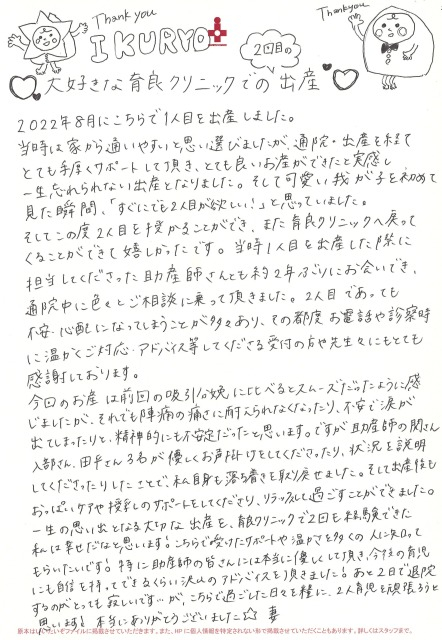 Thank you
IKURYO
Thank you
2回目の
大好きな育良クリニックでの出産
2022年8月にこちらで1人目を出産しました。
当時は家から通いやすいと思い選びましたが、通院・出産を経て
とても手厚くサポートして頂き、とても良いお産ができたと実感し
一生忘れられない出産となりました。そして可愛い我が子を初めて
見た瞬間、「すぐにでも2人目が欲しい!」と思っていました。
そしてこの度2人目を授かることができ、また育良クリニックへ戻って
くることができて嬉しかったです。当時1人目を出産した際に
担当してくださった助産師さんとも約2年ぶりにお会いでき、
通院中に色々とご相談に乗って頂きました。2人目であっても
不安・心配になってしまうことが多々あり、その都度お電話や診察時
に温かくご対応・アドバイス等してくださる受付の方や先生々にもとても
感謝しております。
今回のお産は前回の吸引分娩に比べるとスムーズだったように感
じましたが、それでも陣痛の痛さに耐えられなくなったり、不安で涙が
出てしまったりと、精神的にも不安定だったと思います。ですが助産師の関さん
入部さん、田平さん3名が優しくお声かけをしてくださったり、状況を説明
してくださったりしたことで、私自身も落ち着きを取り戻せました。そして出産後も
おっぱいケアや授乳のサポートをしてくださり、リラックスして過ごすことができました。
一生の思い出となる大切な出産を、育良クリニックで2回も経験できた
私は幸せだなと思います。こちらで受けたサポートや温かさを多くの人に知って
もらいたいです。特に助産師の皆さんには本当に優しくして頂き、今後の育児
にも自信を持ってできるくらい沢山のアドバイスを頂きました。あと2日で退院
するのがとっても寂しいですが、こちらで過ごした日々を糧に、2人育児も頑張ろうと
思います。本当にありがとうございました☆ 妻
原本はげんだいぞうファイルに掲載させていただきます。また、HPに個人情報を特定されない形で掲載させていただくこともあります。詳しくはスタッフまで。